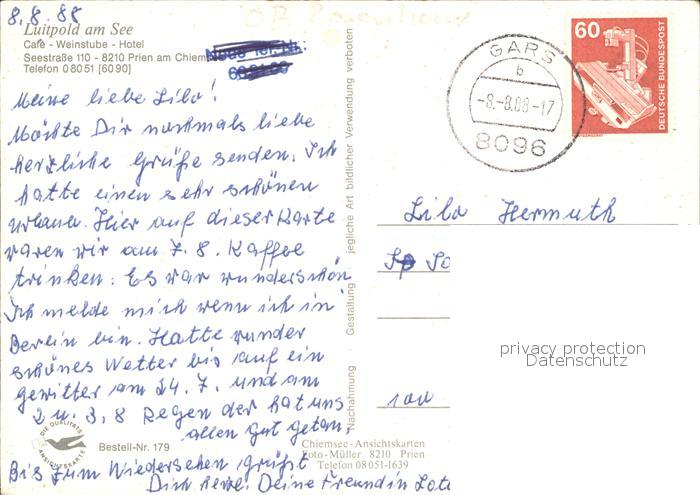 8.8.88
Luitpold am See
Café - Weinstube - Hotel
Seestraße 110 - 8210 Prien am Chiemsee
Telefon 0 80 51 [60 90]
Neue Tel. Nr.
Meine liebe Lilo!
Möchte Dir nochmals liebe
herzliche Grüße senden. Ich
hatte einen sehr schönen
Urlaub. Hier auf dieser Karte
waren wir am 7. 8. Kaffee
trinken. Es war wunderschön
Ich melde mich wenn ich in
Berlin bin. Hatte wunder
schönes Wetter bis auf ein
gewitter am 24. 7. und am
2 u. 3. 8 Regen der hat uns
allen gut getan.
Bis zum Wiedersehen grüßt
Dich Deine Freundin Lot
DIE QUALITÄTS
ANSICHTSKARTE
Bestell-Nr. 179
Chiemsee-Ansichtskarten
Foto-Müller 8210 Prien
Telefon 08 051-1639
Nachahmung - Gestaltung jegliche Art bildlicher Verwendung verboten
GARS
b
-8.-8.88-17
8096
60
DEUTSCHE BUNDESPOST
Lilo Hermuth
100
privacy protection
Datenschutz